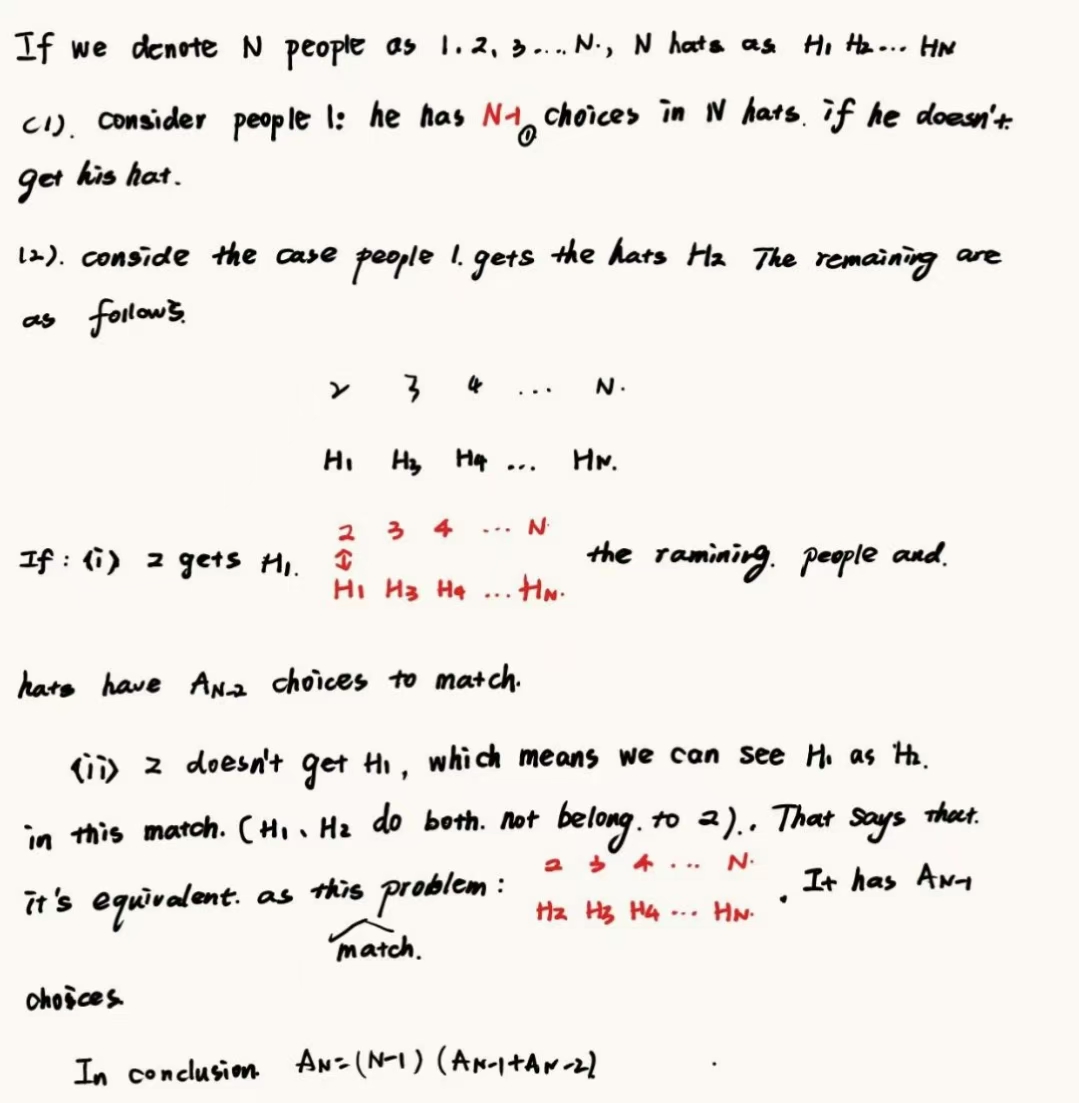 If we denote N people as 1. 2, 3 .... N., N hats as H1 H2 ... HN
(1). consider people 1: he has N-1 choices in N hats. if he doesn't
①
get his hat.
(2). conside the case people 1. gets the hats H2 The remaining are
as follows.
2 3 4 ... N.
H1 H3 H4 ... HN.
2 3 4 ... N
If : (i) 2 gets H1. ↕ the ramining. people and.
H1 H3 H4 ... HN.
hats have AN-2 choices to match.
(ii) 2 doesn't get H1, which means we can see H1 as H2.
in this match. (H1、H2 do both. not belong. to 2).. That says that.
2 3 4 ... N.
it's equivalent. as this problem : . It has AN-1
H2 H3 H4 ... HN.
match.
choices.
In conclusion. AN=(N-1) (AN-1+AN-2)